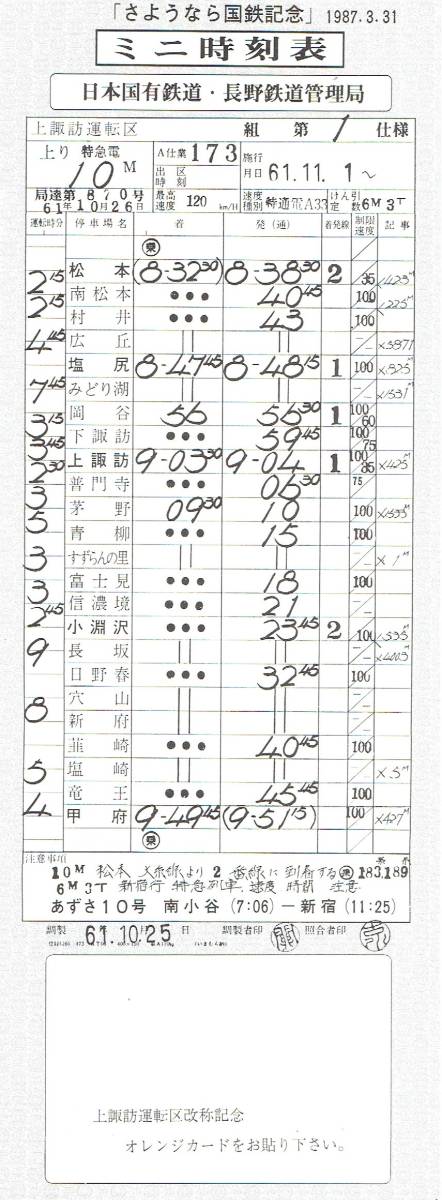 「さようなら国鉄記念」1987.3.31
ミニ時刻表
日本国有鉄道・長野鉄道管理局
上諏訪運転区 組 第 1 仕様
上り 特急電 10M A仕業 173 施行月日 61.11.1～
出区時刻
局達第1870号 61年10月26日 最高速度 120 km/H 速度種別 特通電A33 けん引定数 6M3T
運転時分 停車場名 着 発(通) 着発線 制限速度 記事
乗
松本 (8-32 30) 8-38 30 2 35 ×423M
2 15 南松本 ••• 40 45 100 ×225M
2 15 村井 ••• 43 100
広丘 || || ×5871
4 45 塩尻 8-47 45 8-48 15 1 100 ×525M
みどり湖 || || ×1531M
7 45 岡谷 56 56 30 1 100 60
3 15 下諏訪 ••• 59 45 100 75
3 45 上諏訪 9-03 30 9-04 1 100 85 ×425M
2 30 普門寺 ••• 06 30 75
3 茅野 09 30 10 100 ×1533M
5 青柳 ••• 15 100
すずらんの里 || || ×1M
3 富士見 ••• 18 100
3 信濃境 ••• 21
2 45 小淵沢 ••• 23 45 2 100 ×535M
長坂 || || ×4003M
9 日野春 ••• 32 45 100
穴山 || ||
新府 || ||
8 韮崎 ••• 40 45 100
塩崎 || || ×.5M
5 竜王 ••• 45 45 100
4 甲府 9-49 45 (9-51 15) 100 ×427M
乗
注意事項
10M 松本 大糸線より2番線に到着する 183,189
6M3T 新宿行 特急列車 速度 時間 注意
あずさ10号 南小谷(7:06)ー新宿(11:25)
調製 61年10月25日 調製者印 照合者印
上諏訪運転区改称記念
オレンジカードをお貼り下さい。